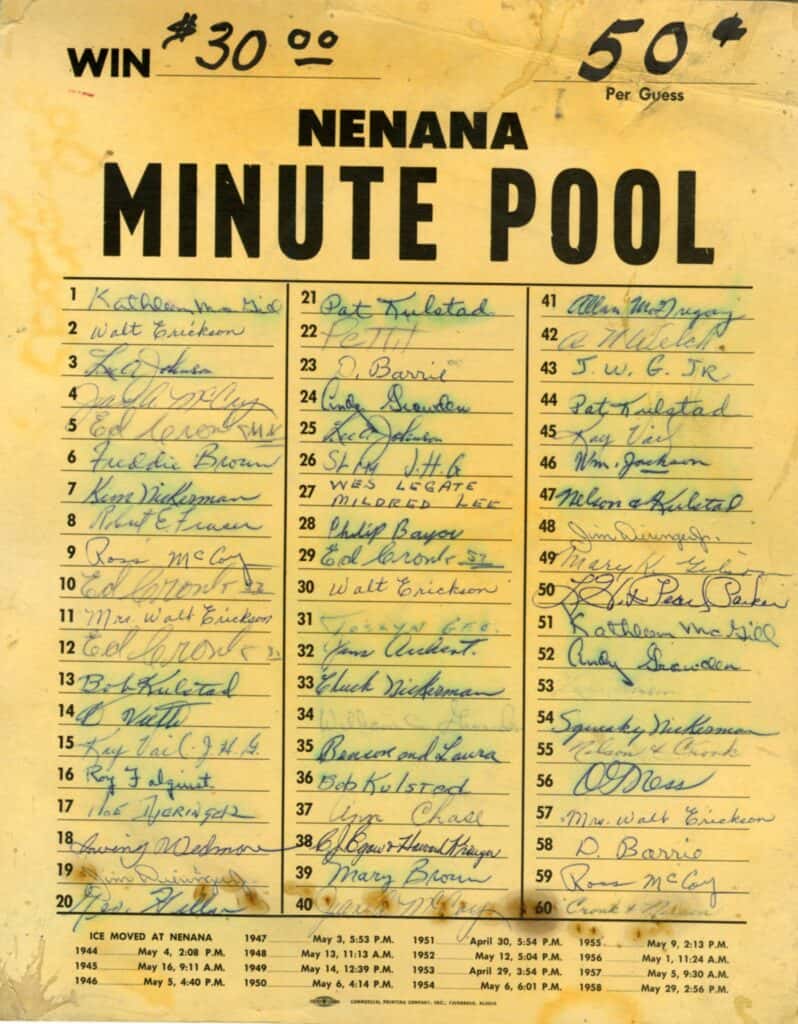 WIN $30.00 50¢
Per Guess
NENANA
MINUTE POOL
1 Kathleen Mc Gill
2 Walt Erickson
3 Lee A Johnson
4 McCoy
5 Ed Cronk
6 Freddie Brown
7 Kim Nickerman
8 Robert E. Fraser
9 Ross McCoy
10 Ed Cronk
11 Mrs. Walt Erickson
12 Ed Cronk
13 Bob Kulstad
14
15 Kay Vail J.H.G.
16 Roy Falquist
17
18 Irving
19 Jim
20 Geo.
21 Pat Kulstad
22 Pettit
23 D. Barrie
24 Andy Snowden
25 Lee A Johnson
26 J.H.G
27 WES LEGATE
MILDRED LEE
28 Philip Bayou
29 Ed Cronk
30 Walt Erickson
31 GEO.
32
33 Chuck Nickerman
34 William
35 Benson and Laura
36 Bob Kulstad
37 Ann Chase
38
39 Mary Brown
40 McCoy
41 Allan McGregor
42 Welch
43 J. W. G. JR
44 Pat Kulstad
45 Kay Vail
46 Wm. Jackson
47 Nelson & Kulstad
48 Jim
49 Mary K.
50 & Pearl Parker
51 Kathleen McGill
52 Andy Snowden
53
54 Squeaky Nickerman
55 Nelson & Cronk
56 O'Mess
57 Mrs. Walt Erickson
58 D. Barrie
59 Ross McCoy
60 Cronk & Nelson
ICE MOVED AT NENANA
1944 May 4, 2:08 P.M.
1945 May 16, 9:11 A.M.
1946 May 5, 4:40 P.M.
1947 May 3, 5:53 P.M.
1948 May 13, 11:13 A.M.
1949 May 14, 12:39 P.M.
1950 May 6, 4:14 P.M.
1951 April 30, 5:54 P.M.
1952 May 12, 5:04 P.M.
1953 April 29, 3:54 P.M.
1954 May 6, 6:01 P.M.
1955 May 9, 2:13 P.M.
1956 May 1, 11:24 A.M.
1957 May 5, 9:30 A.M.
1958 May 29, 2:56 P.M.
COMMERCIAL PRINTING COMPANY, INC., FAIRBANKS, ALASKA